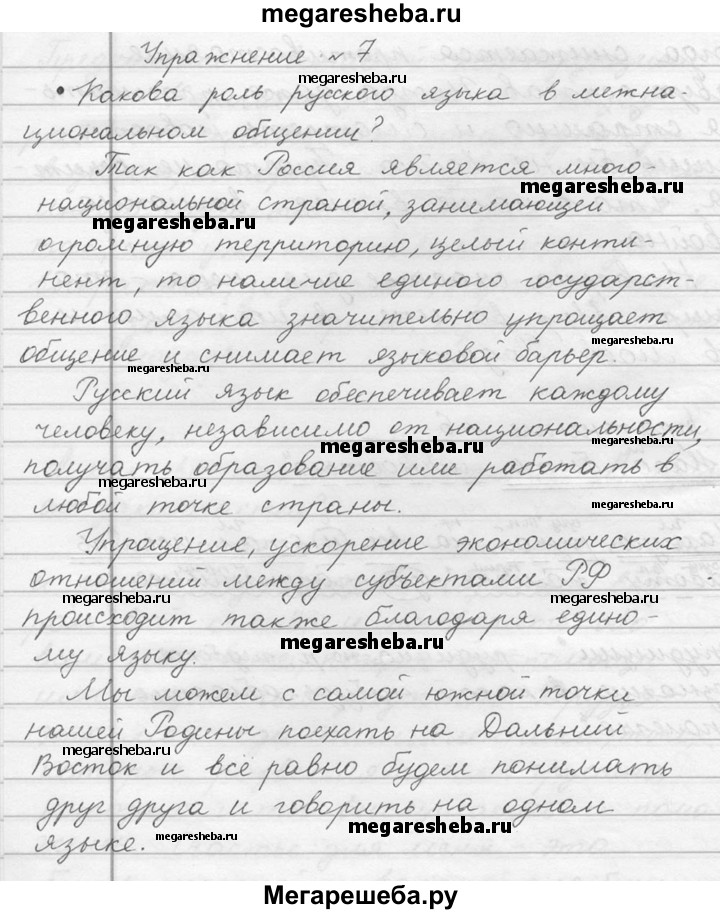 megaresheba.ru
Упражнение № 7
megaresheba.ru
• Какова роль русского языка в межна-
циональном общении?
megaresheba.ru
Так как Россия является много-
megaresheba.ru
национальной страной, занимающей
megaresheba.ru
огромную территорию, целый конти-
нент, то наличие единого государст-
венного языка значительно упрощает
общение и снимает языковой барьер.
megaresheba.ru
Русский язык обеспечивает каждому
человеку, независимо от национальности,
megaresheba.ru
megaresheba.ru
получать образование или работать в
megaresheba.ru
любой точке страны.
megaresheba.ru
Упрощение, ускорение экономических
отношений между субъектами РФ
megaresheba.ru
megaresheba.ru
происходит также благодаря едино-
megaresheba.ru
му языку.
Мы можем с самой южной точки
нашей Родины поехать на Дальний
megaresheba.ru
Восток и всё равно будем понимать
друг друга и говорить на одном
megaresheba.ru
megaresheba.ru
языке.
Мегарешеба.ру